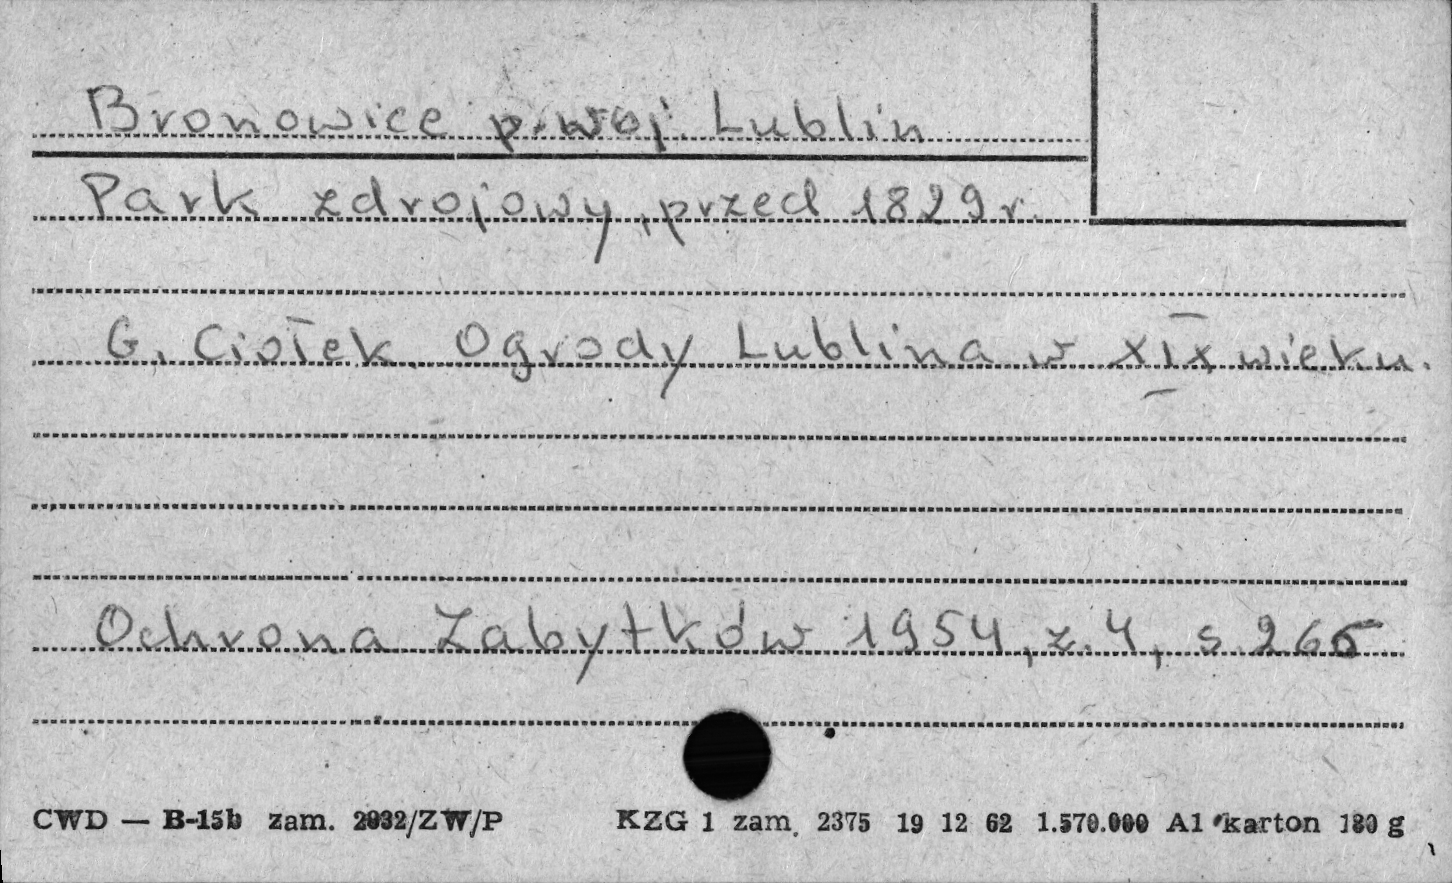 Bronowice p. woj. Lublin
Park zdrojowy, przed 1829 r.
G. Ciołek Ogrody Lublina w XIX wieku.
Ochrona Zabytków 1954, z. 4, s. 265
CWD — B-15b zam. 2032/ZW/P KZG 1 zam. 2375 19 12 62 1.570.000 A1 karton 180 g